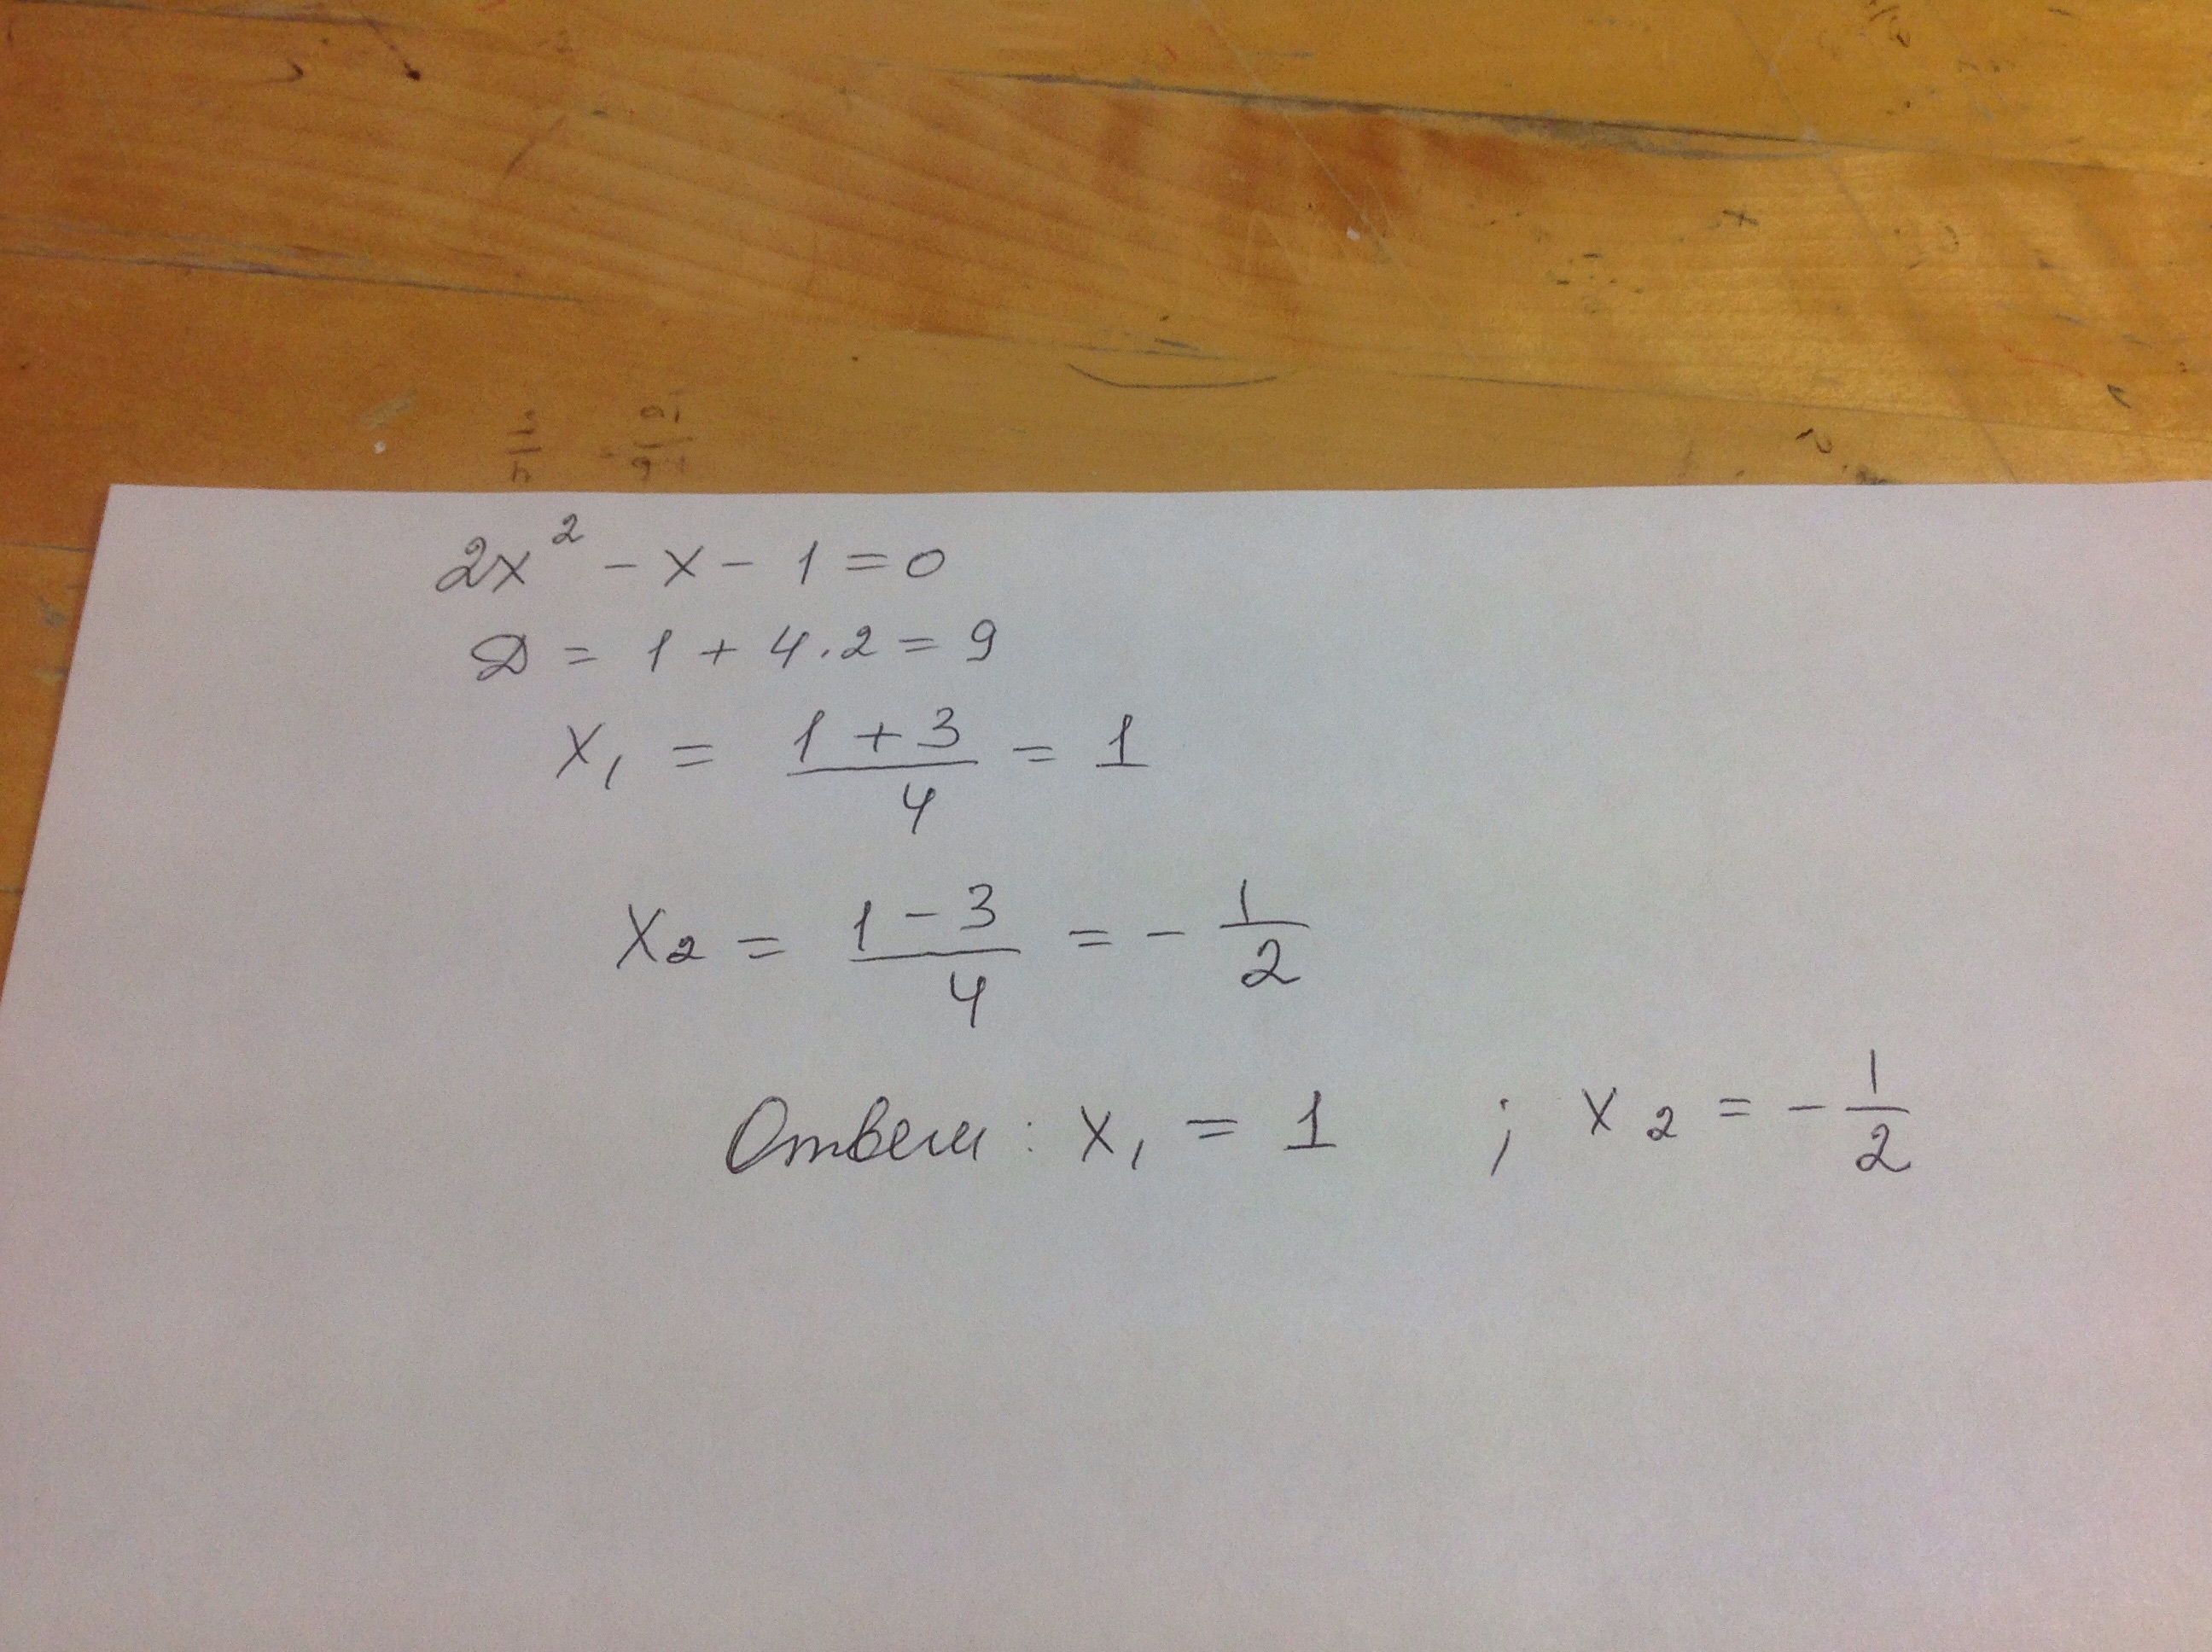 2x² - x - 1 = 0
D = 1 + 4 · 2 = 9
x₁ = (1 + 3)/4 = 1
x₂ = (1 - 3)/4 = - 1/2
Ответ: x₁ = 1 ; x₂ = - 1/2